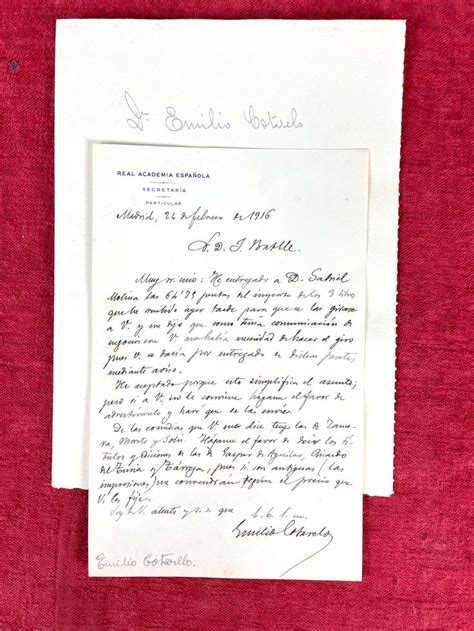 Dn Emilio Cotarelo
REAL ACADEMIA ESPAÑOLA
SECRETARÍA
PARTICULAR
Madrid, 24 de febrero de 1916
S. D. J. Batlle.
Muy sr. mío: He entregado a D. Gabriel
Molina las 64'75 pesetas del importe de los 3 libros
que he recibido ayer tarde para que se las girase
a V. y me dijo que como tenía comunicación de
negocios con V. no había necesidad de hacer el giro
pues V. se daría por entregado de dichas pesetas
mediante aviso.
He aceptado porque esto simplifica el asunto;
pero si a V. no le conviene hágame el favor de
advertírmelo y haré que se las envíe.
De las comedias que V. me dice tengo las de Zamora,
Moreto y Solís. Hágame el favor de decir los tí-
tulos y ediciones de las de Gaspar de Aguilar, Ricardo
del Turia y Tárrega, pues si son antiguas (las
impresiones) me convendrán según el precio que
V. les fije.
Soy de V. atento y s. s. que
Emilio Cotarelo
Emilio Cotarello.